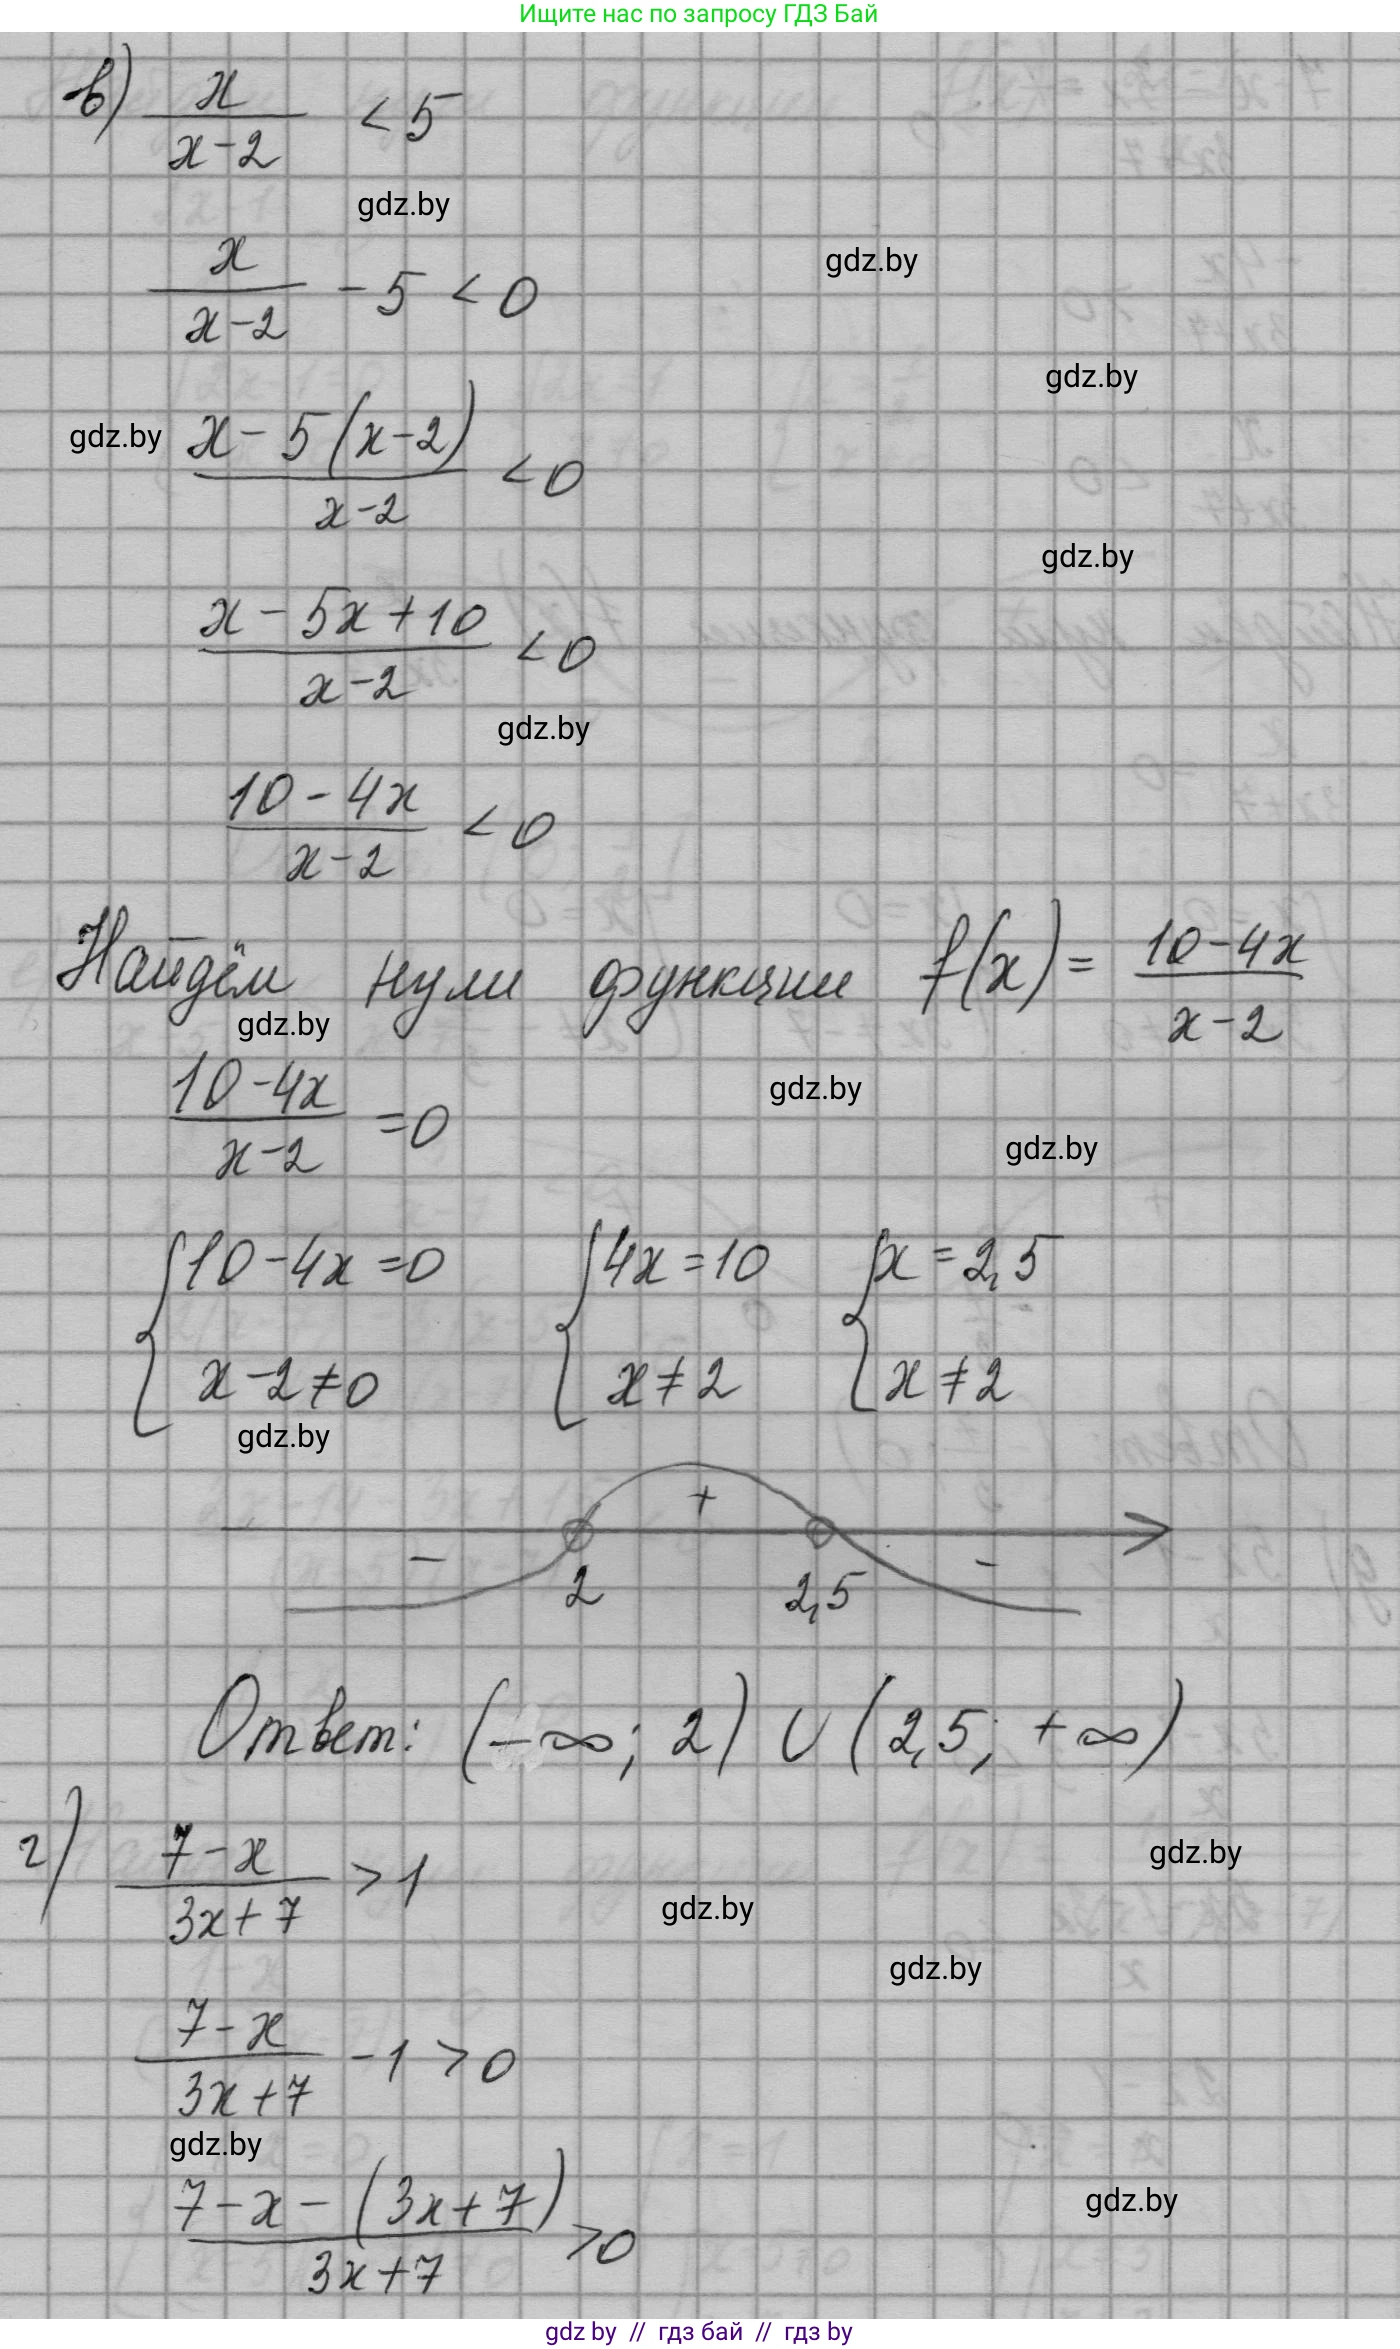 Ищите нас по запросу ГДЗ Бай
в) x/(x-2) < 5
gdz.by
x/(x-2) - 5 < 0
gdz.by
gdz.by
gdz.by (x - 5(x-2))/(x-2) < 0
gdz.by
(x - 5x + 10)/(x-2) < 0
gdz.by
(10 - 4x)/(x-2) < 0
Найдём нули функции f(x) = (10-4x)/(x-2)
gdz.by
(10-4x)/(x-2) = 0
gdz.by
gdz.by
{10-4x=0 {4x=10 {x=2,5
x-2≠0 x≠2 x≠2
gdz.by
- + -
2 2,5
Ответ: (-∞; 2) ∪ (2,5; +∞)
г) (7-x)/(3x+7) > 1
gdz.by
gdz.by
gdz.by
(7-x)/(3x+7) - 1 > 0
gdz.by
(7-x-(3x+7))/(3x+7) > 0
gdz.by
gdz by // гдз бай // гдз by